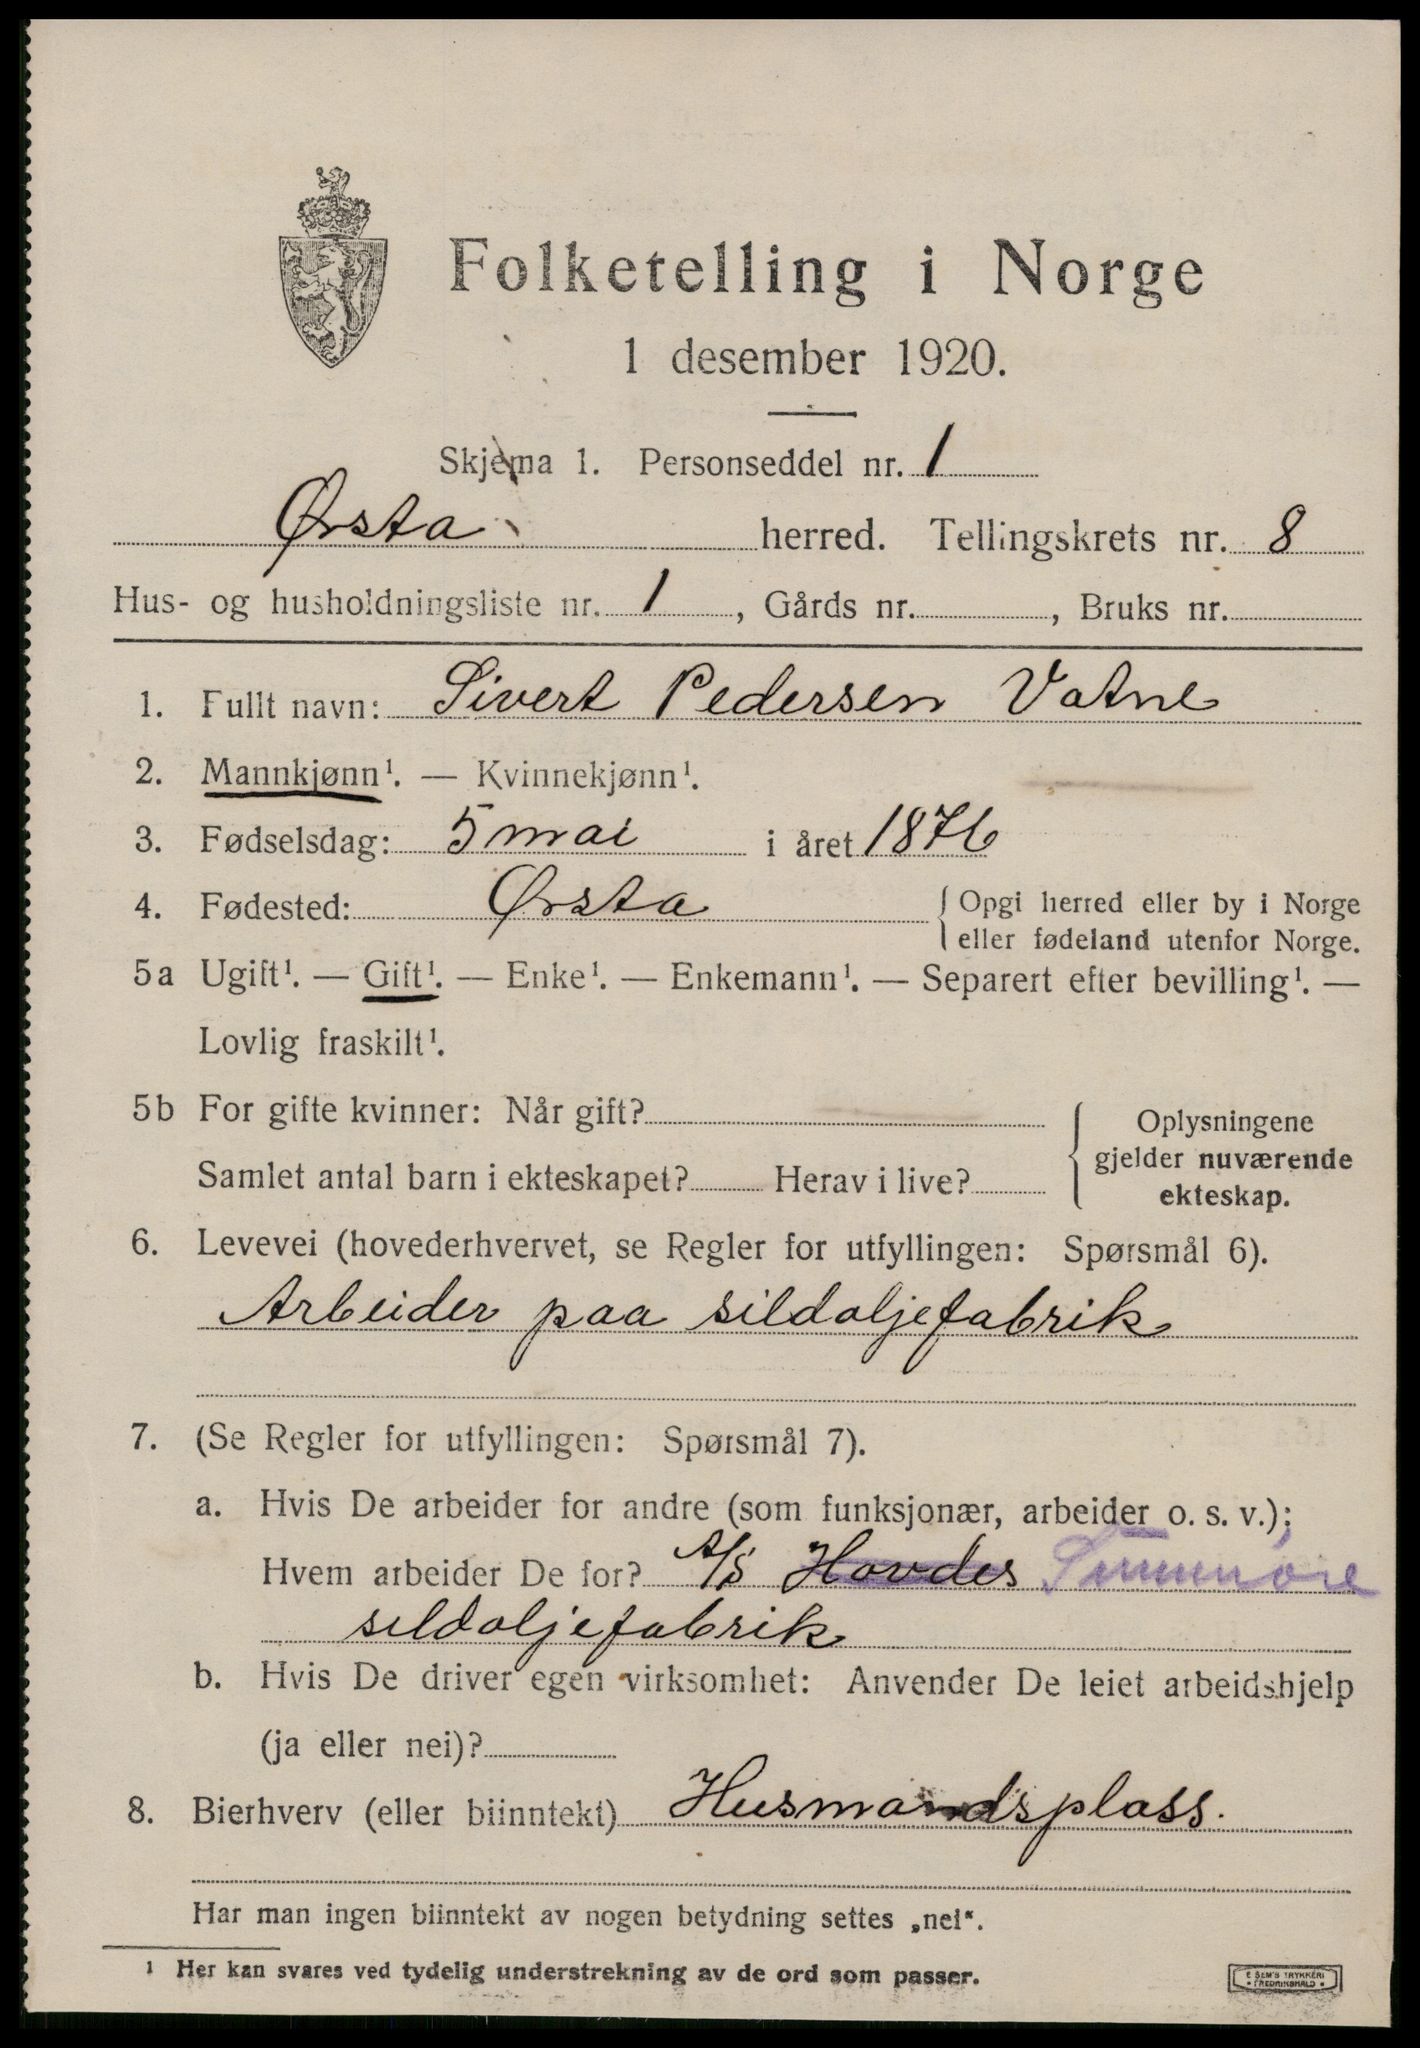 Folketelling i Norge
1 desember 1920.
Skjema 1. Personseddel nr. 1
Ørsta herred. Tellingskrets nr. 8
Hus- og husholdningsliste nr. 1, Gårds nr. , Bruks nr.
1. Fullt navn: Sivert Pedersen Vatne
2. Mannkjønn¹. — Kvinnekjønn¹.
3. Fødselsdag: 5 mai i året 1876
4. Fødested: Ørsta { Opgi herred eller by i Norge
eller fødeland utenfor Norge.
5a Ugift¹. — Gift¹. — Enke¹. — Enkemann¹. — Separert efter bevilling¹. —
Lovlig fraskilt¹.
5b For gifte kvinner: Når gift?
Samlet antal barn i ekteskapet? Herav i live?
{ Oplysningene
gjelder nuværende
ekteskap.
6. Levevei (hovederhvervet, se Regler for utfyllingen: Spørsmål 6).
Arbeider paa sildoljefabrik
7. (Se Regler for utfyllingen: Spørsmål 7).
a. Hvis De arbeider for andre (som funksjonær, arbeider o. s. v.);
Hvem arbeider De for? A/S Hovdes Sunnmøre
sildoljefabrik
b. Hvis De driver egen virksomhet: Anvender De leiet arbeidshjelp
(ja eller nei)?
8. Bierhverv (eller biinntekt) Husmandsplass.
Har man ingen biinntekt av nogen betydning settes „nei“.
¹ Her kan svares ved tydelig understrekning av de ord som passer.
E SEM'S TRYKKERI
• FREDRIKSHALD •